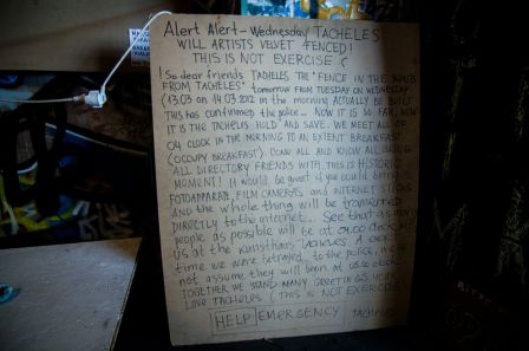 Alert Alert - Wednesday TACHELES
WILL ARTISTS VELVET FENCED!
THIS IS NOT EXERCISE :(
! So dear friends TACHELES THE "FENCE IN THE
FROM TACHELES" tomorrow FROM TUESDAY ON WEDNESDAY
(13.03 on 14.03 2012 in the morning ACTUALLY BE BUILT
THIS has confirmed the police... NOW IT IS SO FAR, NOW
IT IS THE TACHELES HOLD AND SAVE. WE MEET ALL
04 CLOCK IN THE MORNING TO AN EXTENT BREAKFAST
(OCCUPY BREAKFAST) COME ALL AND KNOW ALL
ALL DIRECTORY FRIENDS WITH THIS IS HISTORIC
MOMENT! It would be great if you could bring
FOTOAPPARAT, FILM CAMERAS and INTERNET STICKS
AND the whole thing will be transferred
DIRECTLY to the internet... See that as many
people as possible will be at 04:00 clock
us at the Kunsthaus TACHELES. A
time we were betrayed to the police,
not assume they will begin at
TOGETHER WE STAND MANY GREETINGS
LOVE TACHELES (THIS IS NOT EXERCISE)
HELP EMERGENCY TACHELES